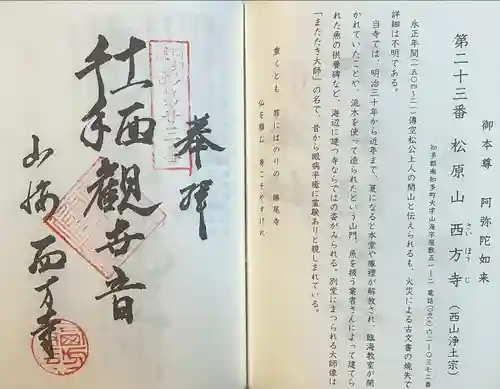 御本尊 阿弥陀如来
第二十三番 松原山 西方寺（西山浄土宗）
さいほうじ
知多郡南知多町大字山海字屋敷五一－二 電話（〇五六九）六二－〇三七二
永正年間（一五〇四～二一）傳空松公上人の開山と伝えられるも、火災による古文書の焼失で
詳細は不明である。
当寺では、明治三十年から近年まで、夏になると本堂や庫裡が解放され、臨海教室が開
かれていたことや、流木を使って造られたという山門、魚を扱う業者さんによって建てら
れた魚の供養碑など、海辺に建つ寺ならではの姿がみられる。別堂にまつられる大師像は
「またたき大師」の名で、昔から眼病平癒に霊験ありと親しまれている。
重くとも 罪にはのりの 勝尾寺
仏を頼む 身こそやすけれ
奉拝
千手
観世音
山海 西方寺